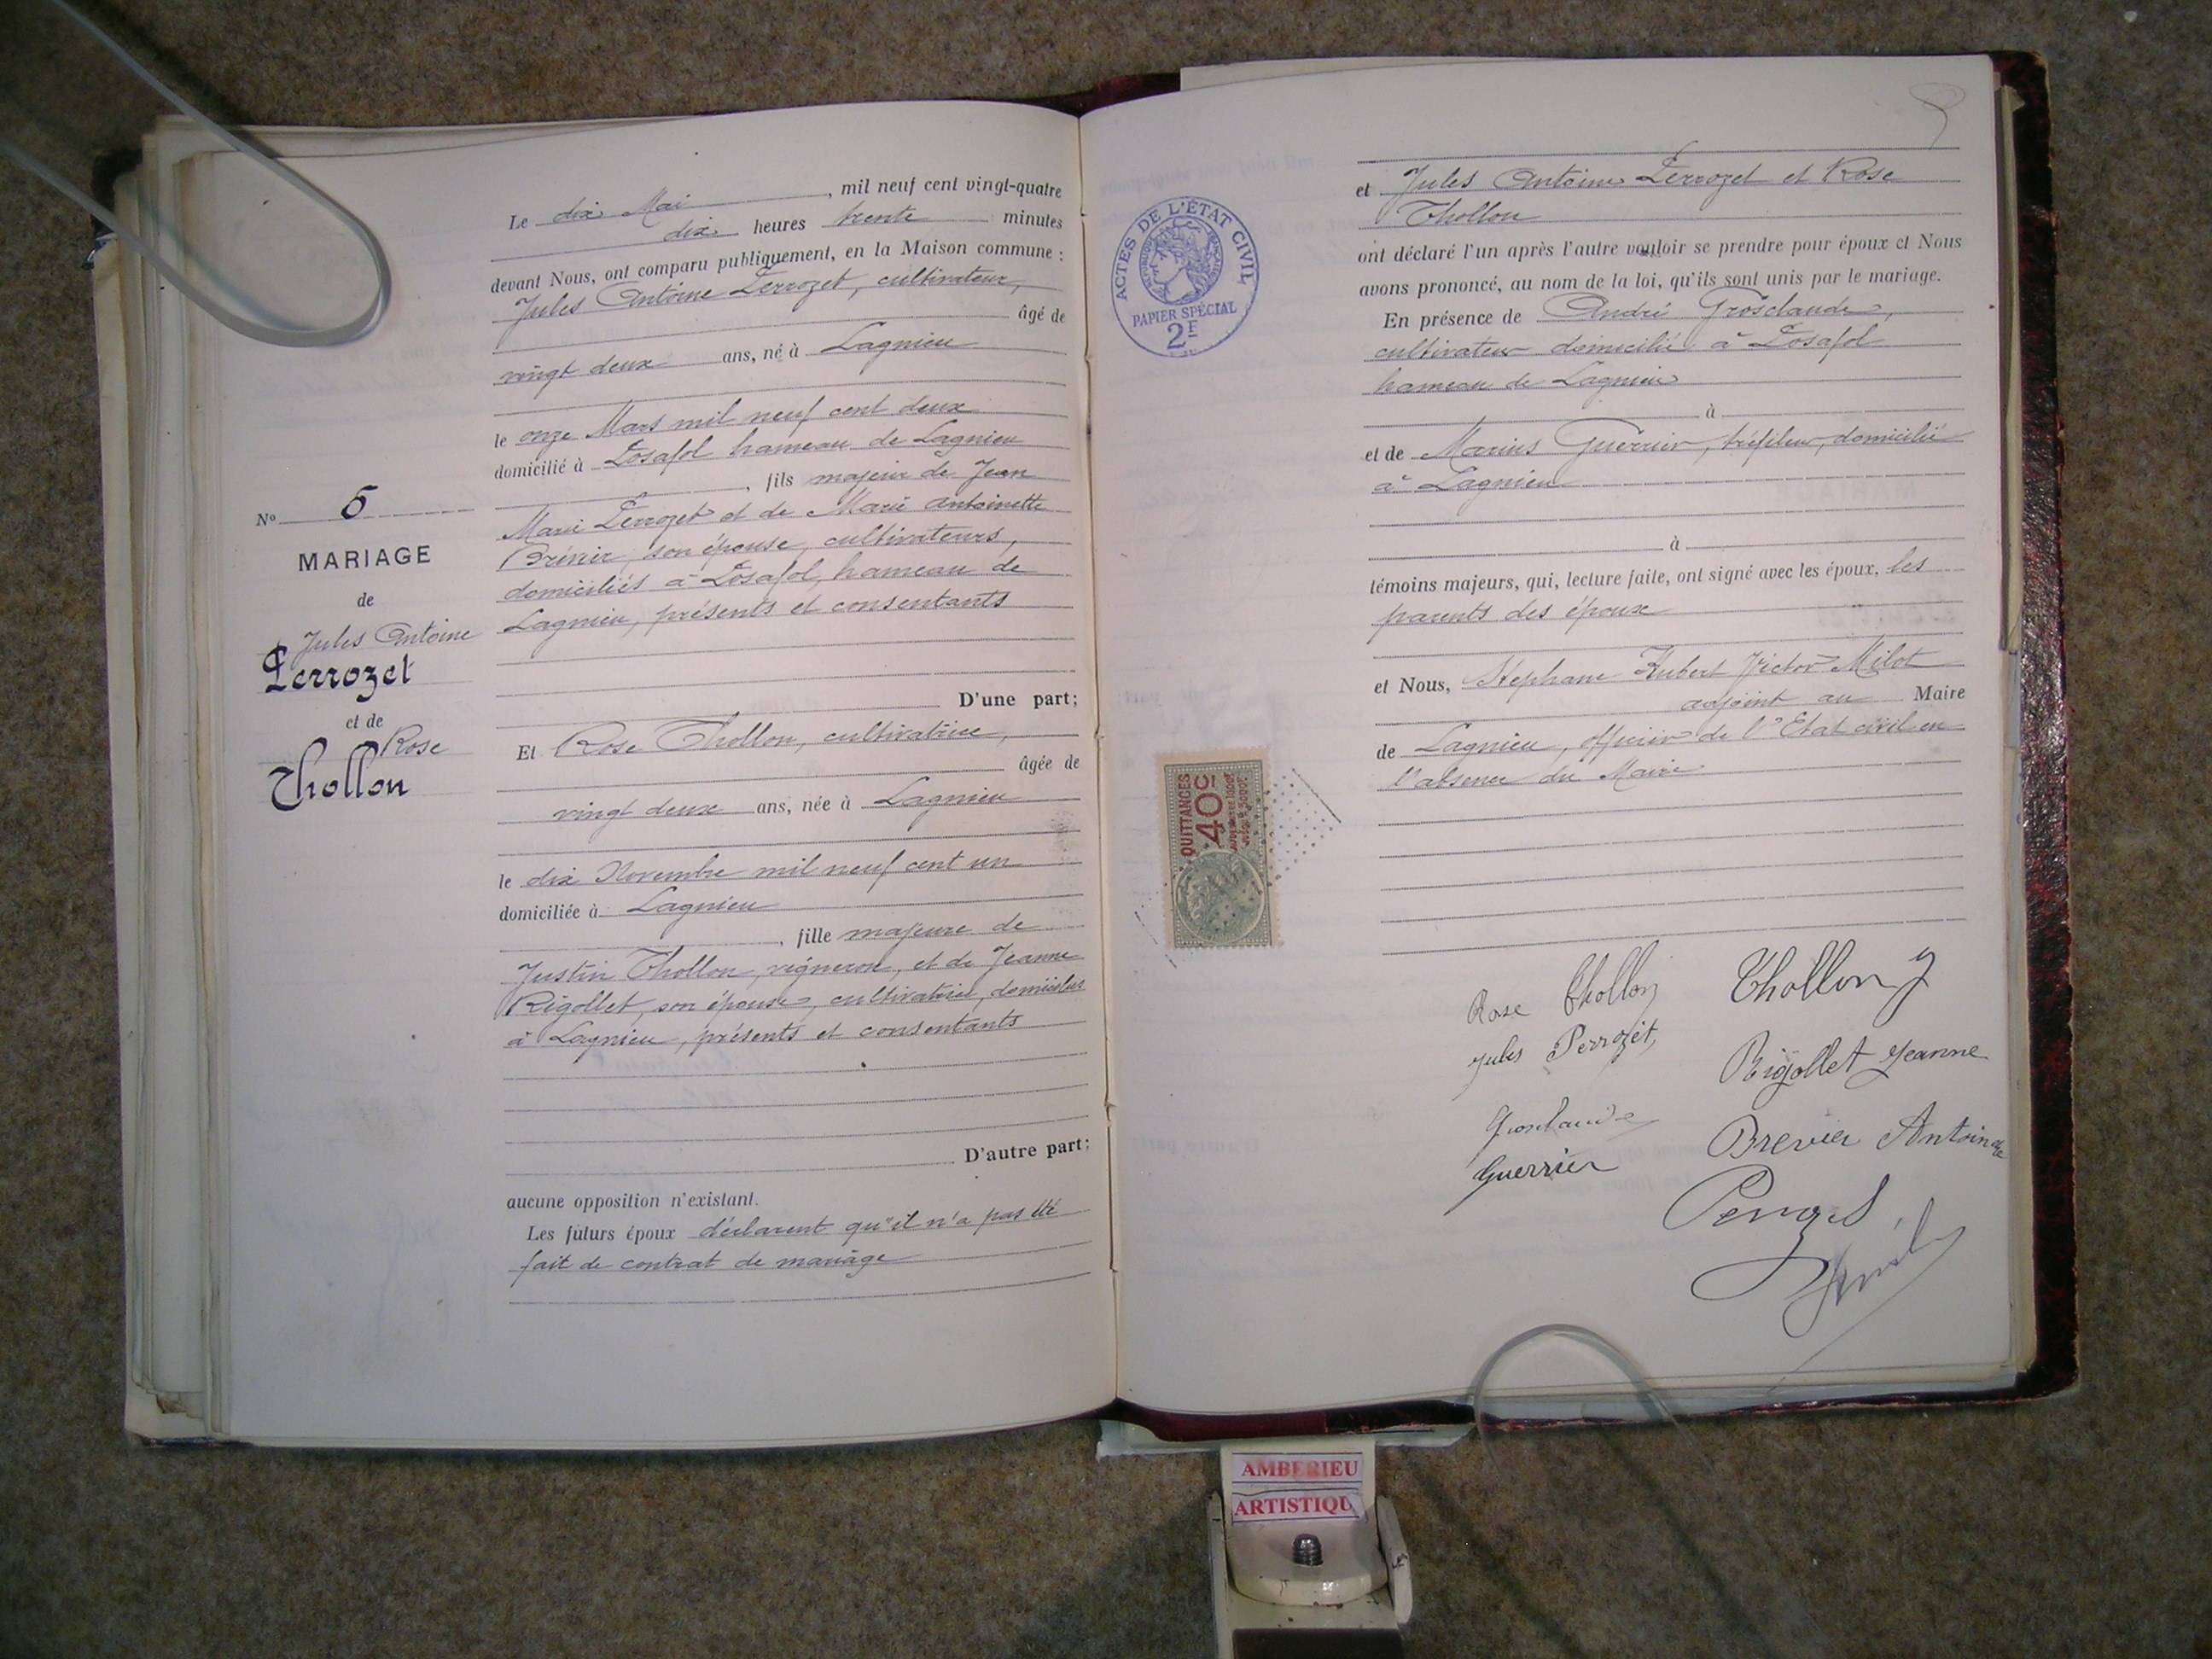 Le dix Mai, mil neuf cent vingt-quatre
dix heures trente minutes
devant Nous, ont comparu publiquement, en la Maison commune :
Jules Antoine Perrozet, cultivateur,
âgé de
vingt deux ans, né à Lagnieu
le onze Mars mil neuf cent deux
domicilié à Posafol hameau de Lagnieu
, fils majeur de Jean
Marie Perrozet et de Marie Antoinette
Brévier, son épouse, cultivateurs,
domiciliés à Posafol, hameau de
Lagnieu, présents et consentants
D'une part;
Nº 6
MARIAGE
de
Jules Antoine
Perrozet
et de
Rose
Thollon
Et Rose Thollon, cultivatrice,
âgée de
vingt deux ans, née à Lagnieu
le dix Novembre mil neuf cent un
domiciliée à Lagnieu
, fille majeure de
Justin Thollon, vigneron, et de Jeanne
Rigollet, son épouse, cultivatrice, domiciliés
à Lagnieu, présents et consentants
D'autre part;
aucune opposition n'existant.
Les futurs époux déclarent qu'il n'a pas été
fait de contrat de mariage
ACTES DE L'ÉTAT CIVIL
PAPIER SPÉCIAL
2F
QUITTANCES
40c
et Jules Antoine Perrozet et Rose
Thollon
ont déclaré l'un après l'autre vouloir se prendre pour époux et Nous
avons prononcé, au nom de la loi, qu'ils sont unis par le mariage.
En présence de André Grosclaude,
cultivateur domicilié à Posafol
hameau de Lagnieu
à
et de Marius Guerrier, tréfileur, domicilié
à Lagnieu
à
témoins majeurs, qui, lecture faite, ont signé avec les époux, les
parents des époux
et Nous, Stéphane Hubert Victor Milot
adjoint au Maire
de Lagnieu, officier de l'Etat civil en
l'absence du Maire
Rose Thollon
Thollon J
Jules Perrozet,
Rigollet Jeanne
Grosclaude
Brevier Antoinette
Guerrier
Perrozet
AMBERIEU
ARTISTIQU